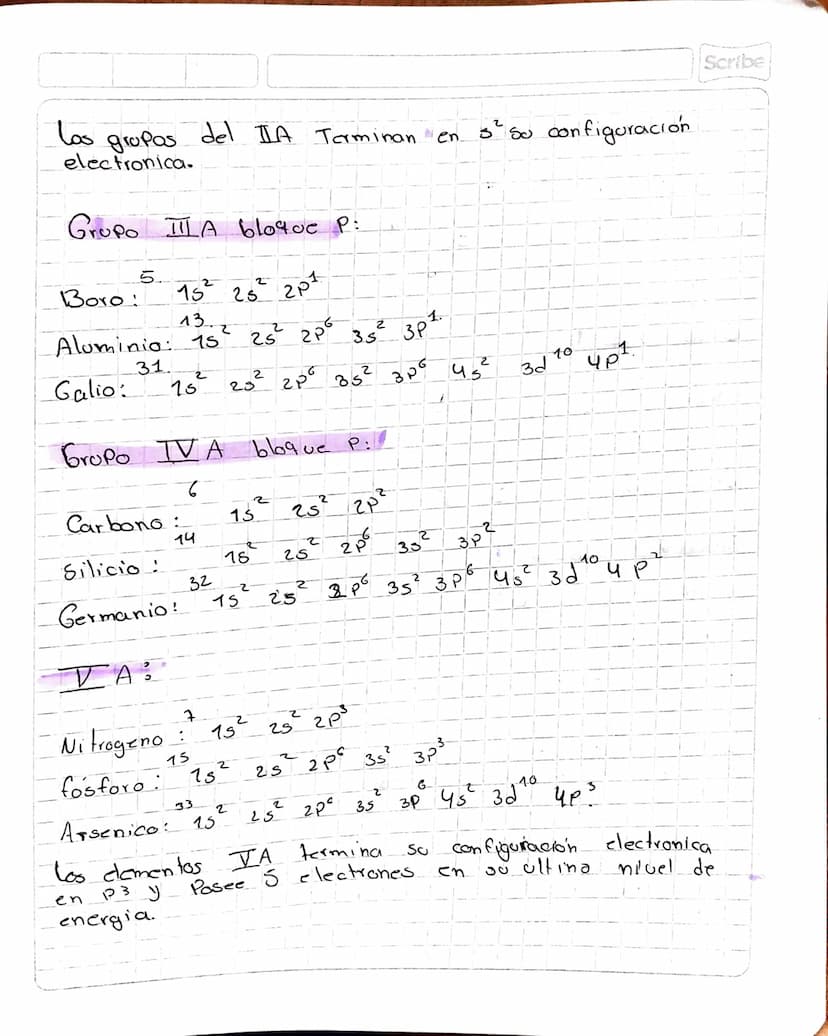 Scribe
Los grupos del IIA Terminan en s² su configuración
electronica.
Grupo III A bloque P:
Boro: 5. 1s² 2s² 2p¹
Aluminio: 13. 1s² 2s² 2p⁶ 3s² 3p¹.
Galio: 31. 1s² 2s² 2p⁶ 3s² 3p⁶ 4s² 3d¹⁰ 4p¹.
Grupo IV A bloque P:
Carbono: 6 1s² 2s² 2p²
Silicio: 14 1s² 2s² 2p⁶ 3s² 3p²
Germanio: 32 1s² 2s² 2p⁶ 3s² 3p⁶ 4s² 3d¹⁰ 4p²
V A:
Nitrogeno: 7 1s² 2s² 2p³
fósforo: 15 1s² 2s² 2p⁶ 3s² 3p³
Arsenico: 33 1s² 2s² 2p⁶ 3s² 3p⁶ 4s² 3d¹⁰ 4p³.
Los elementos VA termina su configuración electronica
en p³ y Posee 5 electrones en su ultino nivel de
energia.